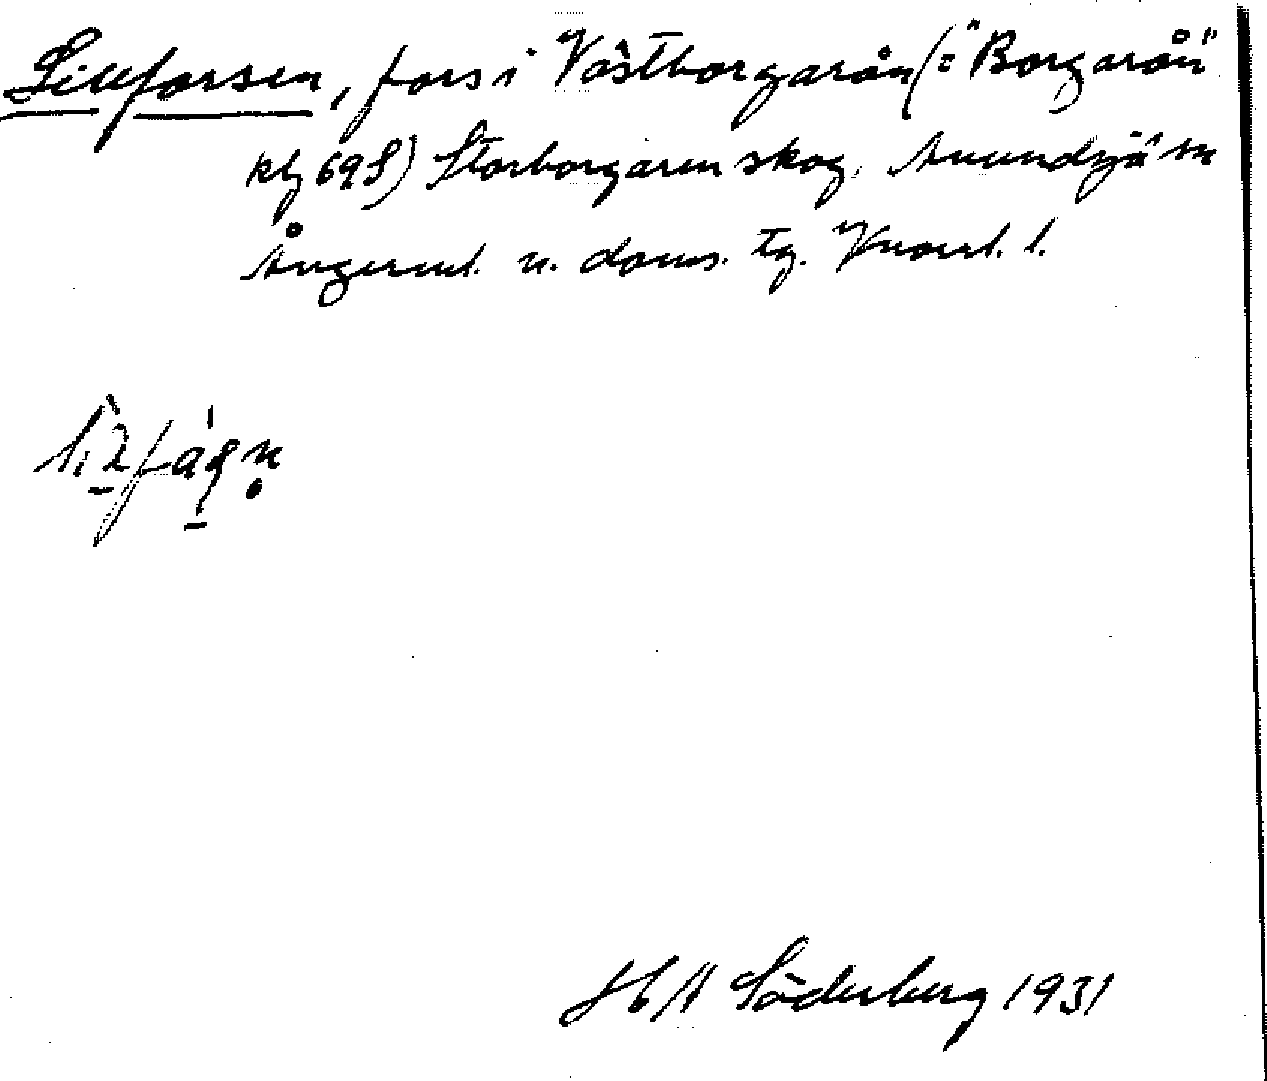 Lillforsen, fors i Västborgarån (= "Borgarån"
kbl 69 S) Storborgaren skog, Anundsjö sn
Ångerml. n. doms. tg. Vnorrl. l.
H A Söderberg 1931